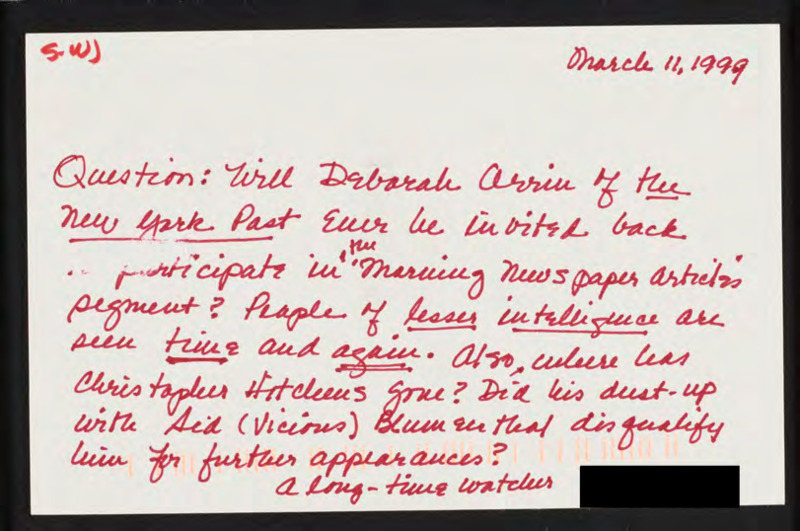 S-WJ
March 11, 1999
Question: Will Deborah Orrin of the
New York Post ever be invited back
participate in the "Morning Newspaper Articles"
segment? People of lesser intelligence are
seen time and again. Also, where has
Christopher Hitchens gone? Did his dust-up
with Sid (Vicious) Blumenthal disqualify
him for further appearances?
A long-time watcher